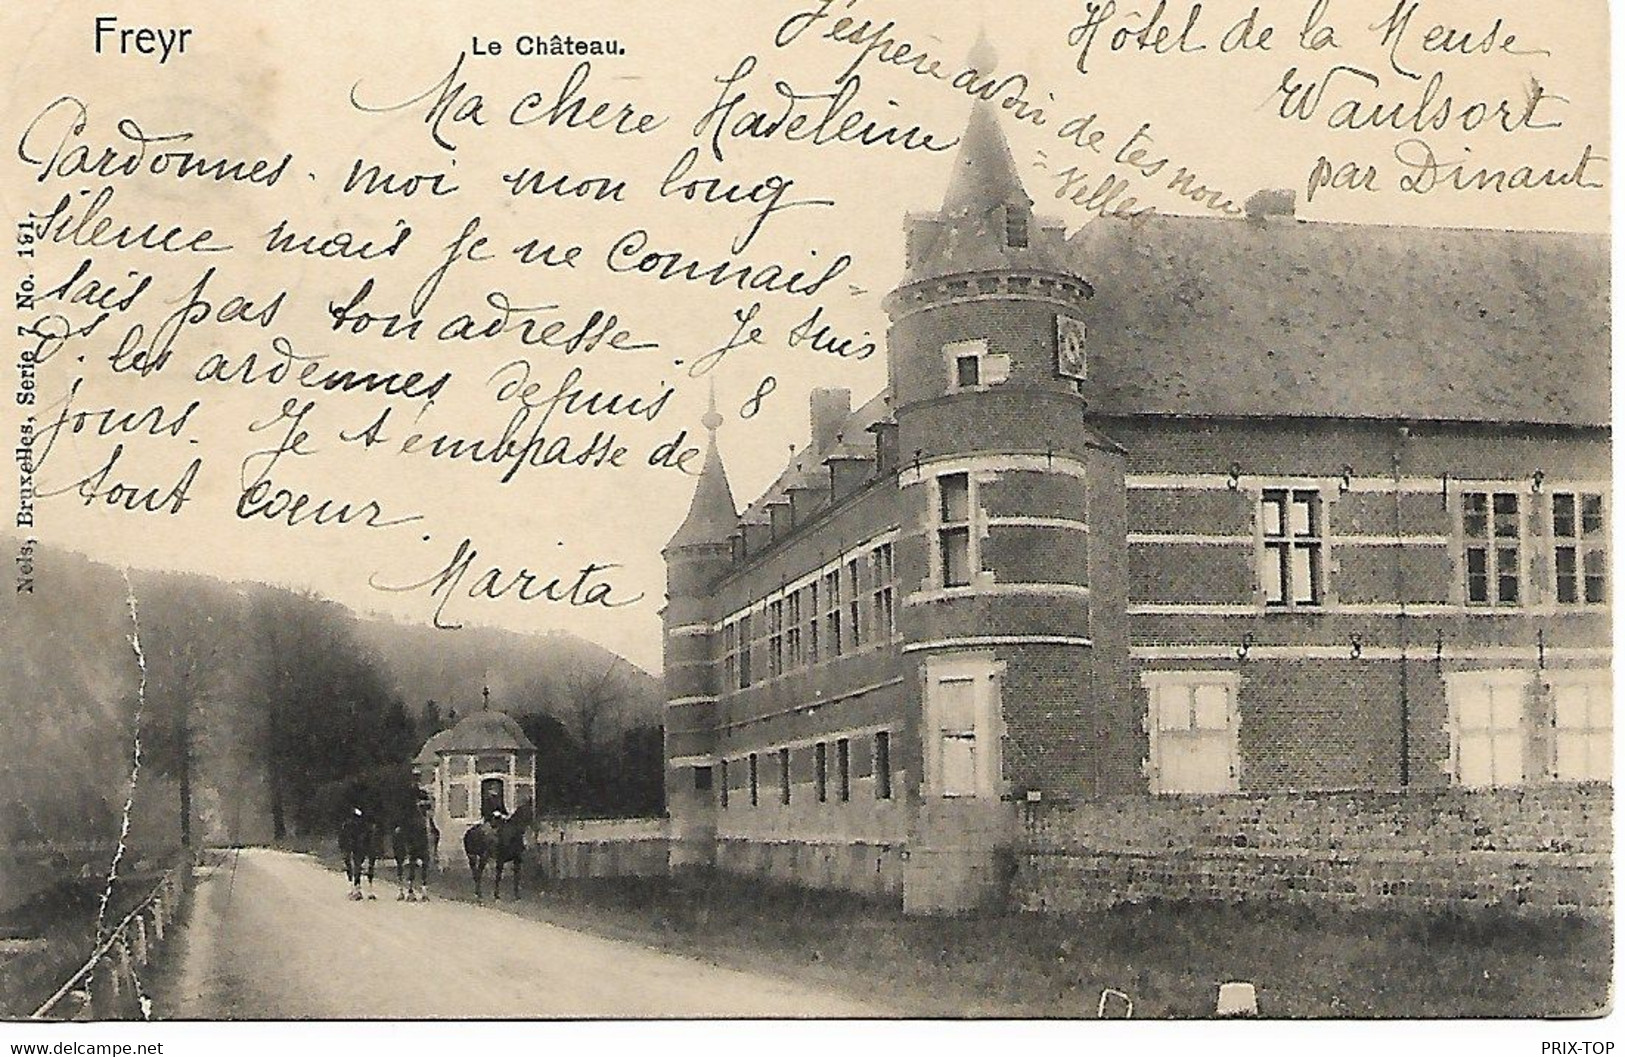 Freyr
Le Château.
Hôtel de la Meuse
Waulsort
par Dinant
Ma chère Madeleine
Pardonnes-moi mon long
silence mais je ne connais-
sais pas ton adresse. Je suis
ds. les ardennes depuis 8
jours. Je t'embrasse de
tout cœur.
Marita
J'espère avoir de tes nou
=velles
Nels, Bruxelles, Serie 7 No. 191.
delcampe.net
PRIX-TOP